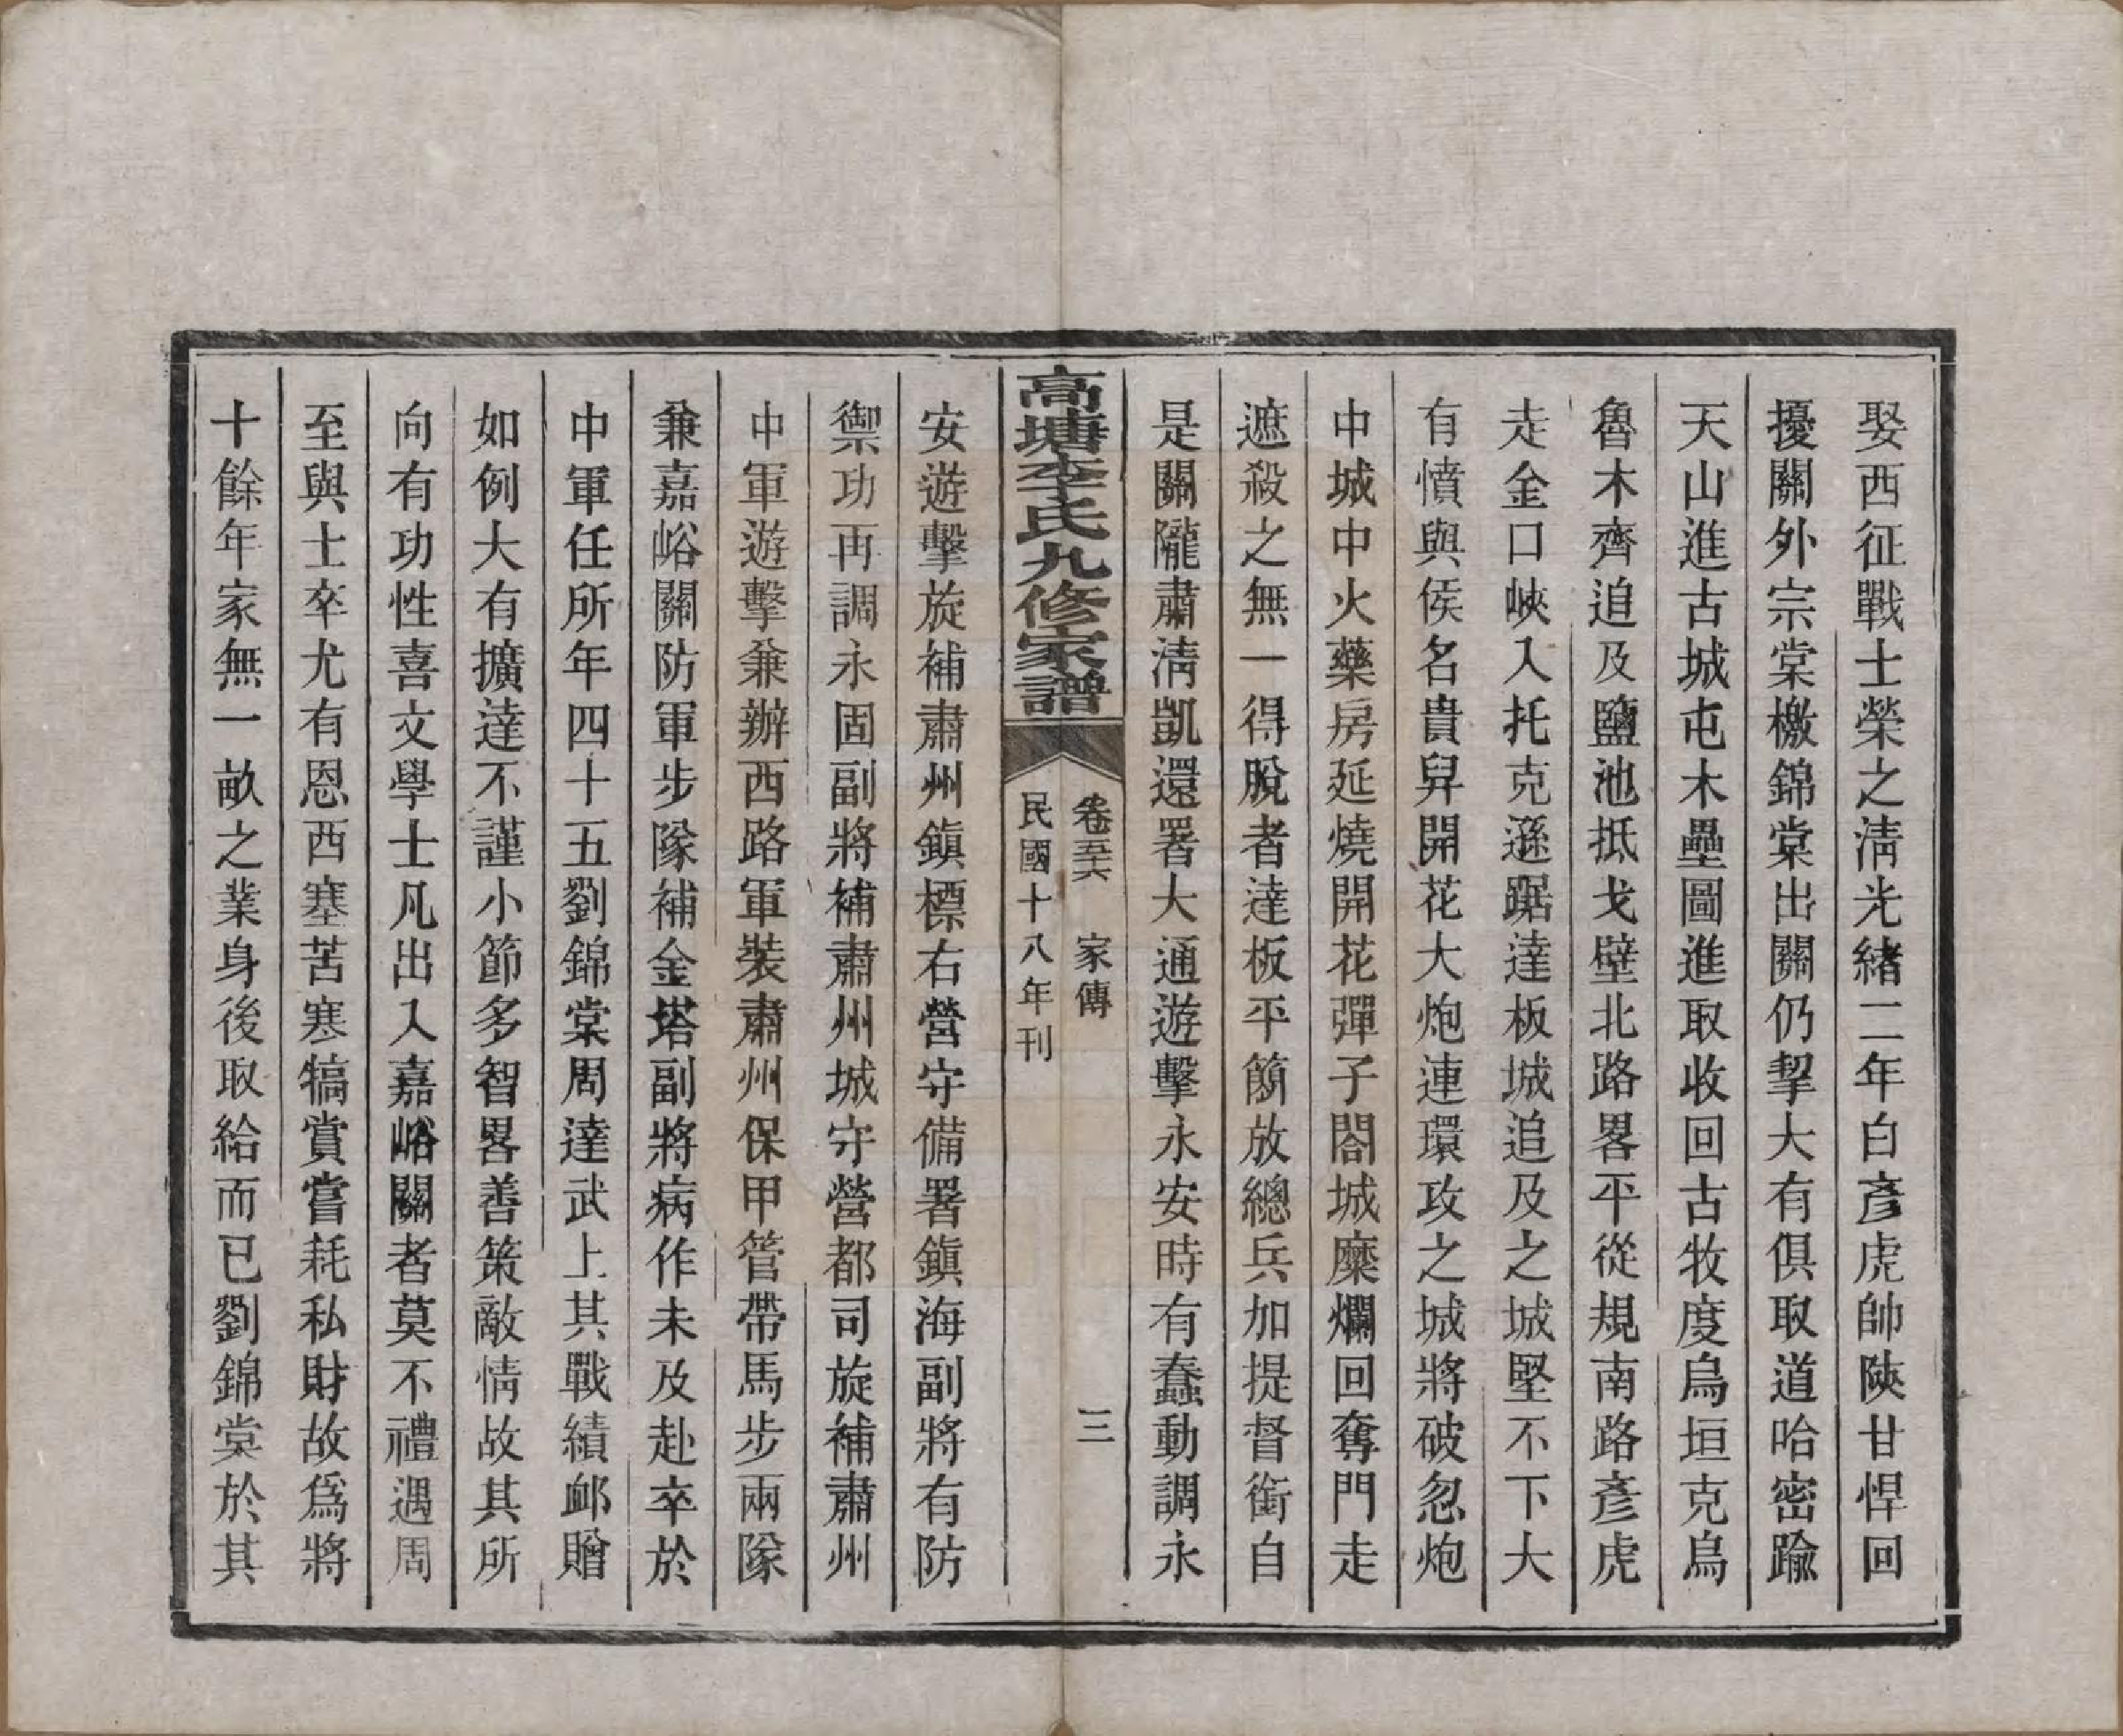 娶西征戰士榮之淸光緒二年白彥虎帥陝甘悍回
擾關外宗棠檄錦棠出關仍挈大有俱取道哈密踰
天山進古城屯木壘圖進取收回古牧度烏垣克烏
魯木齊追及鹽池抵戈壁北路畧平從規南路彥虎
走金口峽入托克遜踞達板城追及之城堅不下大
有憤與侯名貴舁開花大炮連環攻之城將破忽炮
中城中火藥房延燒開花彈子閤城糜爛回奪門走
遮殺之無一得脫者達板平簡放總兵加提督銜自
是關隴肅淸凱還署大通遊擊永安時有蠢動調永
高塘李氏九修家譜
卷五六 家傳 三
民國十八年刊
安遊擊旋補肅州鎭標右營守備署鎭海副將有防
禦功再調永固副將補肅州城守營都司旋補肅州
中軍遊擊兼辦西路軍裝肅州保甲管帶馬步兩隊
兼嘉峪關防軍步隊補金塔副將病作未及赴卒於
中軍任所年四十五劉錦棠周達武上其戰績卹贈
如例大有擴達不謹小節多智畧善策敵情故其所
向有功性喜文學士凡出入嘉峪關者莫不禮遇周
至與士卒尤有恩西塞苦寒犒賞嘗耗私財故爲將
十餘年家無一畝之業身後取給而已劉錦棠於其